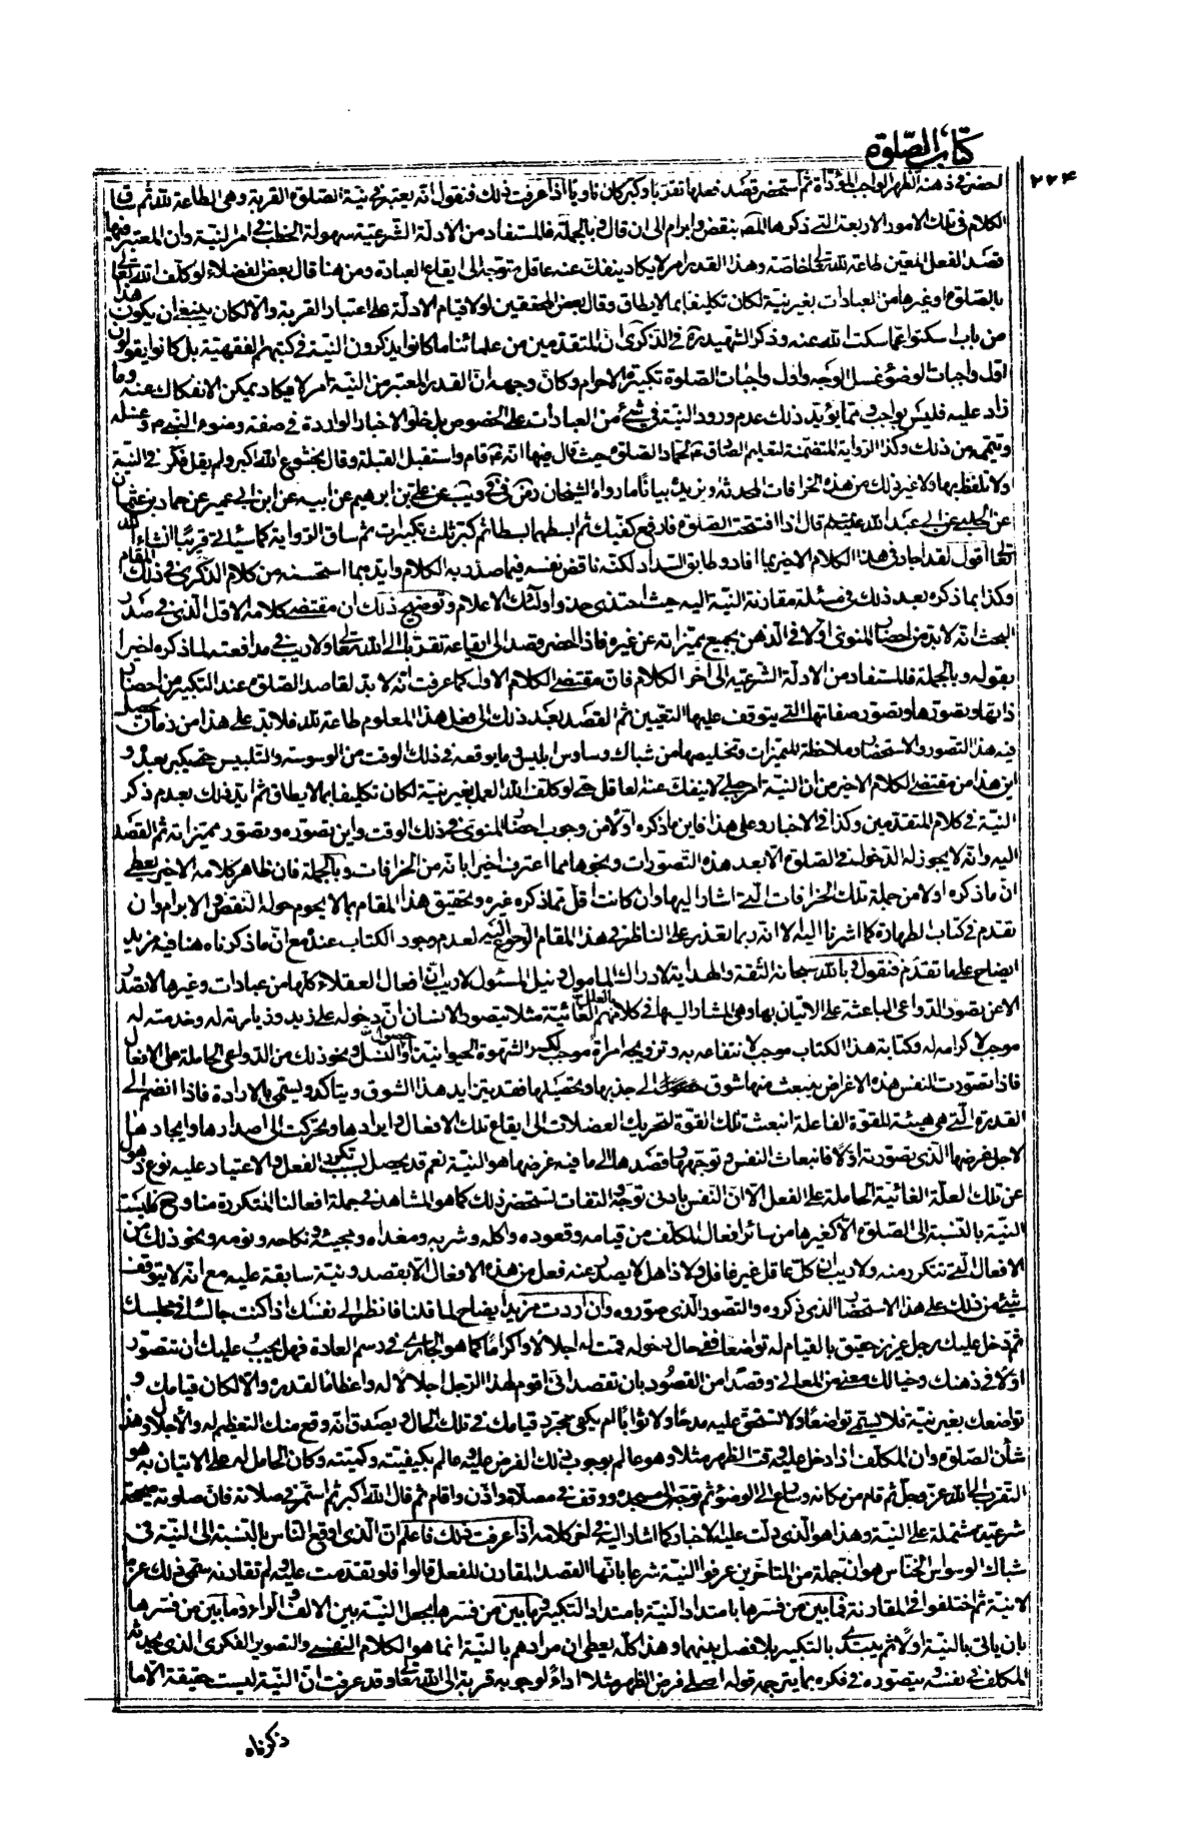 كتاب الصلوة
٢٢۴
احضر في ذهنه الظهر الواجب المؤداة ثم استحضر قصد فعلها تقربا وكبر كان ناويا اذا عرفت ذلك فنقول انه يعتبر في نية الصلوة القربة وهي الطاعة لله ثم ساق
الكلام في تلك الامور الاربعة التي ذكرها المصه بنقض وابرام الى ان قال وبالجملة فالمستفاد من الادلة الشرعية سهولة الخطب في امر النية وان المعتبر فيها
قصد الفعل المعين طاعة لله تعالى خاصة وهذا القدر امر لا يكاد ينفك عنه عاقل متوجه الى ايقاع العبادة ومن هنا قال بعض الفضلاء لو كلف الله تعالى
بالصلوة او غيرها من العبادات بغير نية لكان تكليفا بما لا يطاق وقال بعض المحققين لولا قيام الادلة على اعتبار القربة والا لكان ينبغي ان يكون هذا
من باب اسكتوا عما سكت الله عنه وذكر الشهيد ره في الذكرى ان المتقدمين من علمائنا ما كانوا يذكرون النية في كتبهم الفقهية بل كانوا يقولون
اول واجبات الوضوء غسل الوجه واول واجبات الصلوة تكبيرة الاحرام وكان وجهه ان القدر المعتبر من النية امر لا يكاد يمكن الانفكاك عنه وما
زاد عليه فليس بواجب ومما يؤيد ذلك عدم ورود النية في شئ من العبادات على الخصوص بل خلو الاخبار الواردة في صفة وضوء النبي ص وغسله
وتيممه من ذلك وكذا الرواية المتضمنة لتعليم الصادق ع لحماد الصلوة حيث قال فيها انه ع قام واستقبل القبلة وقال بخشوع الله اكبر ولم يقل فكر في النية
ولا تلفظ بها ولا غير ذلك من هذه الخرافات المحدثة ويزيده بيانا ما رواه الشيخان عن علي بن ابرهيم عن ابيه عن ابن ابي عمير عن حماد بن عثمان
عن الحلبي عن ابي عبد الله ع قال اذا افتتحت الصلوة فارفع كفيك ثم ابسطهما بسطا ثم كبر ثلث تكبيرات ثم ساق الرواية كما سياتي قريبا انشاء الله
تعالى اقول لقد اجاد في هذا الكلام الاخير بما افاد وطابق السداد لكنه ناقض نفسه فيما صدر به الكلام وايده بما استحسنه من كلام الذكرى في ذلك المقام
وكذا بما ذكره بعد ذلك في مسئلة مقارنة النية اليه حيث احتذى حذو اولئك الاعلام وتوضيح ذلك ان مقتضى كلامه الاول الذي في صدر
البحث انه لا بد من احضار المنوي اولا في الذهن بجميع مميزاته عن غيره فاذا احضر وقصد الى ايقاعه تقربا الى الله تعالى ولا ريب في مدافعته لما ذكره اخيرا
بقوله وبالجملة فالمستفاد من الادلة الشرعية الى اخر الكلام فان مقتضى الكلام الاول كما عرفت انه لا بد لقاصد الصلوة عند التكبير من احضار
ذاتها وتصورها وتصور صفاتها التي يتوقف عليها التعيين ثم القصد بعد ذلك الى فعل هذا المعلوم طاعة لله فلا بد على هذا من زمان يحصل
فيه هذا التصور والاستحضار وملاحظة المميزات وتخليصها من شباك وساوس ابليس وما يوقعه في ذلك الوقت من الوسوسة والتلبيس حتى يكبر بعد و
اين هذا من مقتضى الكلام الاخير من ان النية امر جبلي لا ينفك عنه العاقل حتى لو كلف الله العمل بغير نية لكان تكليفا بما لا يطاق ثم ايد ذلك بعدم ذكر
النية في كلام المتقدمين وكذا في الاخبار وعلى هذا فاين ما ذكره اولا من وجوب احضار المنوي في ذلك الوقت واين تصوره وتصور مميزاته ثم القصد
اليه وانه لا يجوز له الدخول في الصلوة الا بعد هذه التصورات ونحوها مما اعترف اخيرا بانه من الخرافات وبالجملة فان ظاهر كلامه الاخير يعطي
ان ما ذكره اولا من جملة تلك الخرافات التي اشار اليها وان كانت اقل مما ذكره غيره وتحقيق هذا المقام بما لا يحوم حوله النقض والابرام وان
تقدم في كتاب الطهارة كما اشرنا اليه الا انه ربما تعذر على الناظر في هذا المقام الرجوع اليه لعدم وجود الكتاب عنده مع ان ما ذكرناه هنا فيه مزيد
ايضاح على ما تقدم فنقول وبالله سبحانه الثقة والهداية لادراك المامول ونيل المسئول لا ريب ان افعال العقلاء كلها من عبادات وغيرها لا تصدر
الا عن تصور الدواعي الباعثة على الاتيان بها وهي المشار اليها في كلامهم بالعلل الغائية مثلا يتصور الانسان ان دخوله على زيد وزيارته له وخدمته له
موجب لاكرامه له وكتابة هذا الكتاب موجب لانتفاعه به وتزويجه امراة موجب لكسر الشهوة الحيوانية او حصول النسل ونحو ذلك من الدواعي الحاملة على الافعال
فاذا تصورت النفس هذه الاغراض ينبعث منها شوق الى جذبها وتحصيلها فقد يتزايد هذا الشوق ويتاكد ويسمى بالارادة فاذا انضم الى
القدرة التي هي هيئة للقوة الفاعلة انبعثت تلك القوة لتحريك العضلات الى ايقاع تلك الافعال وايرادها وتحركت الى اصدارها وايجادها
لاجل غرضها الذي تصورته اولا فانبعاث النفس وتوجهها وقصدها الى ما فيه غرضها هو النية نعم قد يحصل بسبب تكرر الفعل والاعتياد عليه نوع ذهول
عن تلك العلة الغائية الحاملة على الفعل الا ان النفس بادنى توجه والتفات تستحضر ذلك كما هو المشاهد في جملة افعالنا المتكررة منا وح فليست
النية بالنسبة الى الصلوة الا كغيرها من سائر افعال المكلف من قيامه وقعوده واكله وشربه ومغداه ومجيئه ونكاحه ونومه ونحو ذلك من
الافعال التي تتكرر منه ولا ريب ان كل عاقل غير غافل ولا ذاهل لا يصدر عنه فعل من هذه الافعال الا بقصد ونية سابقة عليه مع انه لا يتوقف
شئ من ذلك على هذا الاستحضار الذي ذكروه والتصور الذي صوروه وان اردت مزيد ايضاح لما قلنا فانظر الى نفسك اذا كنت جالسا في مجلسك
ثم دخل عليك رجل عزيز حقيق بالقيام له تواضعا ففي حال دخوله قمت له اجلالا واكراما كما هو الجاري في رسم العادة فهل يجب عليك ان تتصور
اولا في ذهنك وخيالك معنى من المعاني وقصدا من القصود بان تقصد اني اقوم لهذا الرجل اجلالا له واعظاما لقدره والا لكان قيامك و
تواضعك بغير نية فلا يسمى تواضعا ولا تستحق عليه مدحا ولا ثوابا ام يكفي مجرد قيامك في تلك الحال ويصدق انه وقع منك التعظيم له والاجلال وهذا
شأن الصلوة وان المكلف اذا دخل عليه وقت الظهر مثلا وهو عالم بوجوب ذلك الفرض عليه وعالم بكيفيته وكميته وكان الحامل له على الاتيان به هو
التقرب الى الله عز وجل ثم قام من مكانه وسارع الى الوضوء ثم توجه الى مسجده ووقف في مصلاه واذن واقام ثم قال الله اكبر ثم استمر في صلاته فان صلوته صحيحة
شرعية مشتملة على النية وهذا هو الذي دلت عليه الاخبار كما اشار اليه في اخر كلامه اذا عرفت ذلك فاعلم ان الذي اوقع الناس بالنسبة الى النية في
شباك الوسواس الخناس هو ان جملة من المتاخرين عرفوا النية شرعا بانها القصد المقارن للفعل قالوا فلو تقدمت عليه ولم تقارنه سمي ذلك عزما
لا نية ثم اختلفوا في المقارنة فما بين من فسرها بامتداد النية بامتداد التكبير وما بين من فسرها بجعل النية بين الالف والراء وما بين من فسرها
بان ياتي بالنية اولا ثم يبتدئ بالتكبير بلا فصل بينهما وهذا كله يعطي ان مرادهم بالنية انما هو الكلام النفسي والتصوير الفكري الذي يحدثه
المكلف في نفسه ويتصوره في فكره بما يترجمه قوله اصلي فرض الظهر مثلا اداء لوجوبه قربة الى الله تعالى وقد عرفت ان النية ليست حقيقة الا ما
ذكرناه